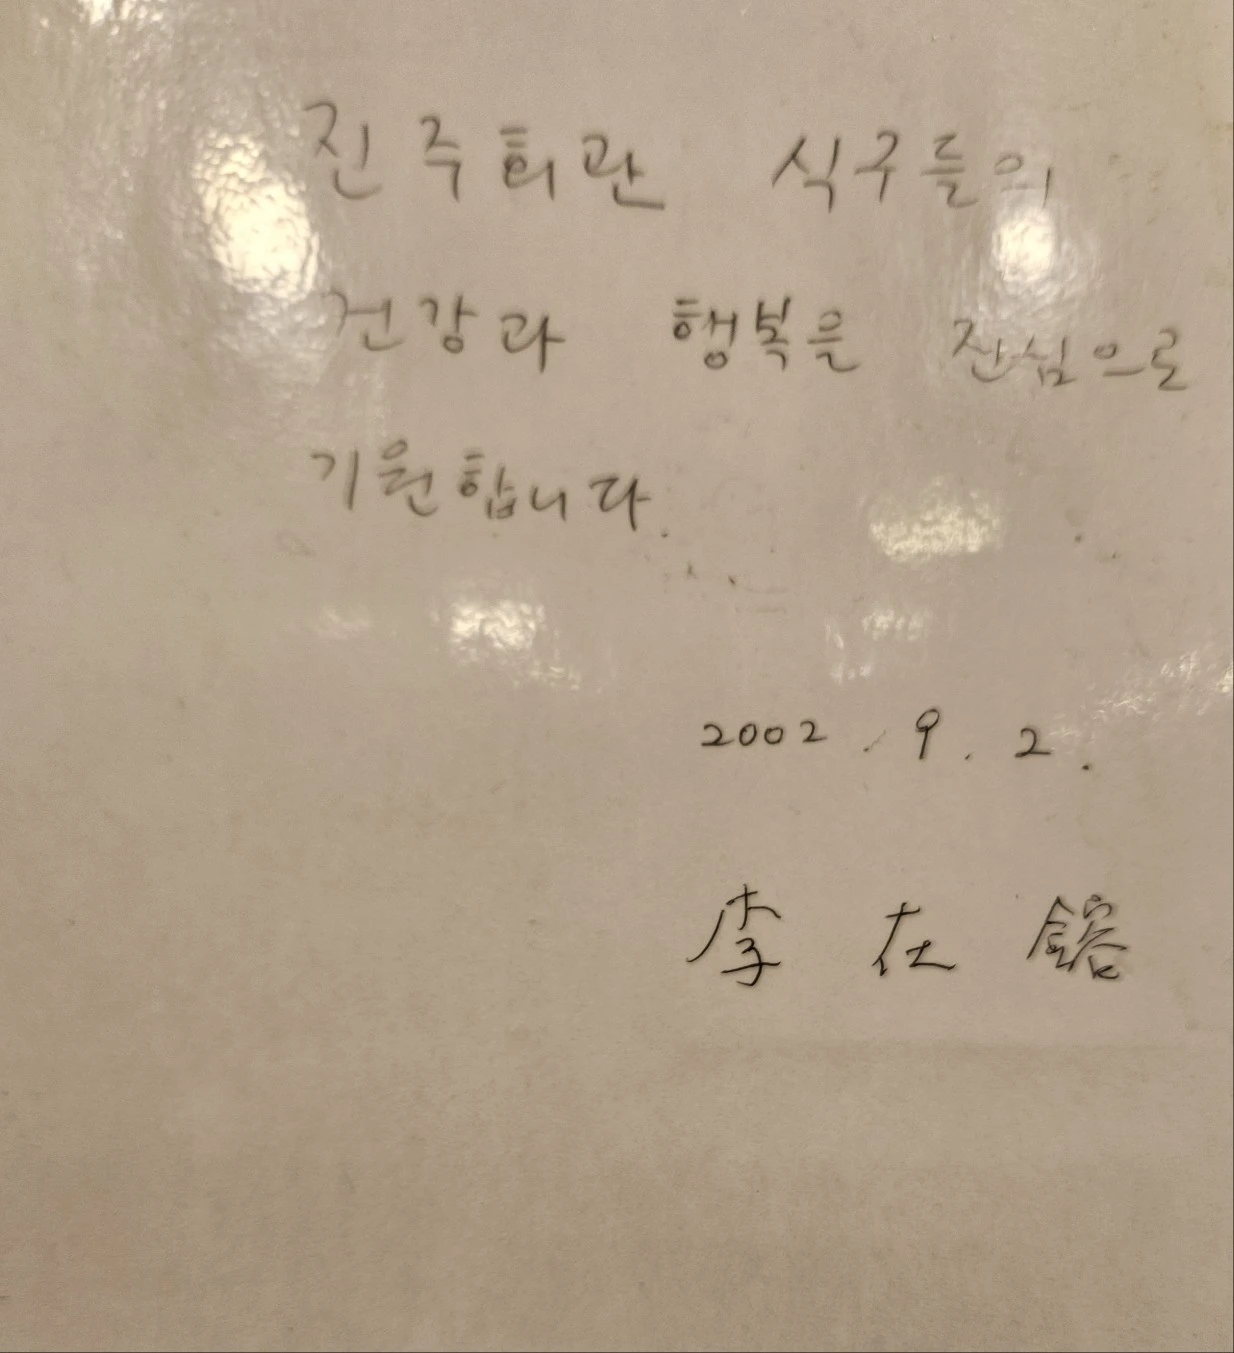 진주회관 식구들의
건강과 행복을 진심으로
기원합니다.
2002. 9. 2.
李 在 鎔